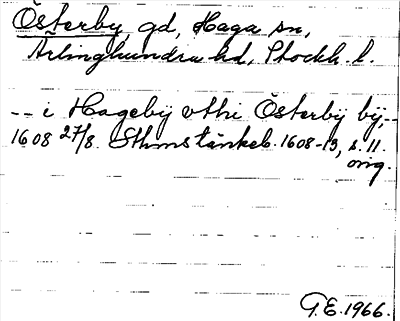 Österby, gd, Haga sn,
Ärlinghundra hd, Stockh. l.
-- i Hagebÿ vthi Österbÿ bÿ, --
1608 27/8. Sthms tänkeb. 1608-13, s. 11.
orig.
G.E. 1966.